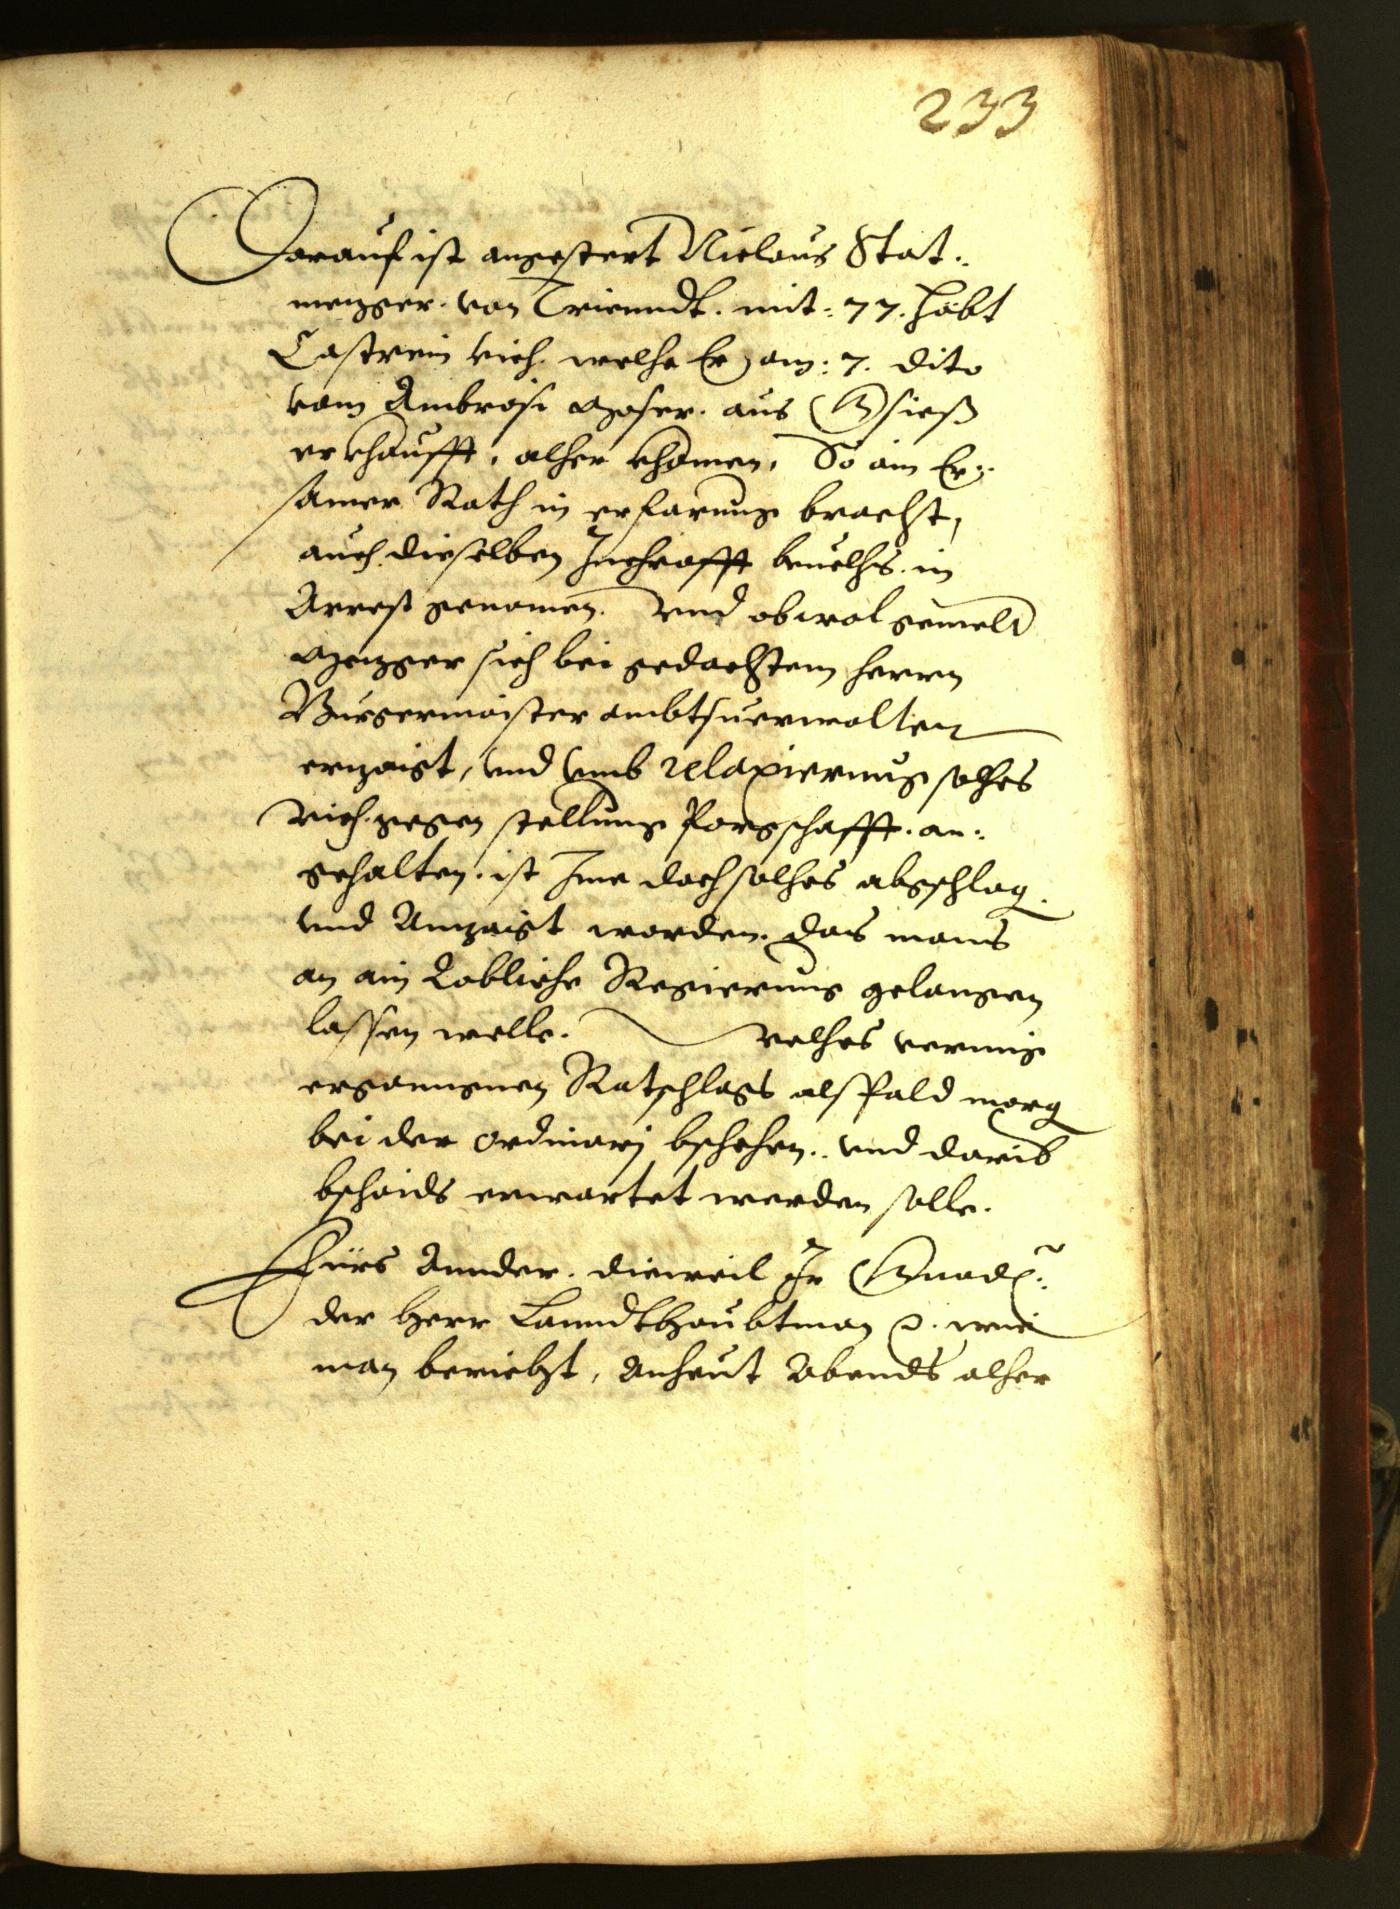 233
Darauf ist angestert Niclaus Stat..
mezger. von Trienndt. mit: 77. Habt
Castrein vich. welhe Er am: 7. dito
vom Ambrosi Moser. aus Gsieß
erkhaufft, alher khomen, So ain Er:
samer Rath in erfarung bracht,
auch dieselben Inchrafft beuelhs. in
Arrest genomen. Vnd obwol gemelt
Mezger sich bei gedachtem herrn
Burgermaister ambtsuerwalter
erzaigt, vnd vmb relaxierung solhes
vich. gegen stellung Porgschafft. an:
gehalten. ist Ime doch solhes abgschlag.
vnd Anzaigt worden. das mans
an ain Lobliche Regierung gelangen
lassen welle. welhes vermug
erganngnen Ratschlags alsPald morg
bei der ordinarj bschehen.. vnd darib
bschaids erwartet werden solle.
Fürs Annder. dieweil Ir Gnad.:
der herr Lanndtshaubtman wie
man bericht, Anheut Abends alher